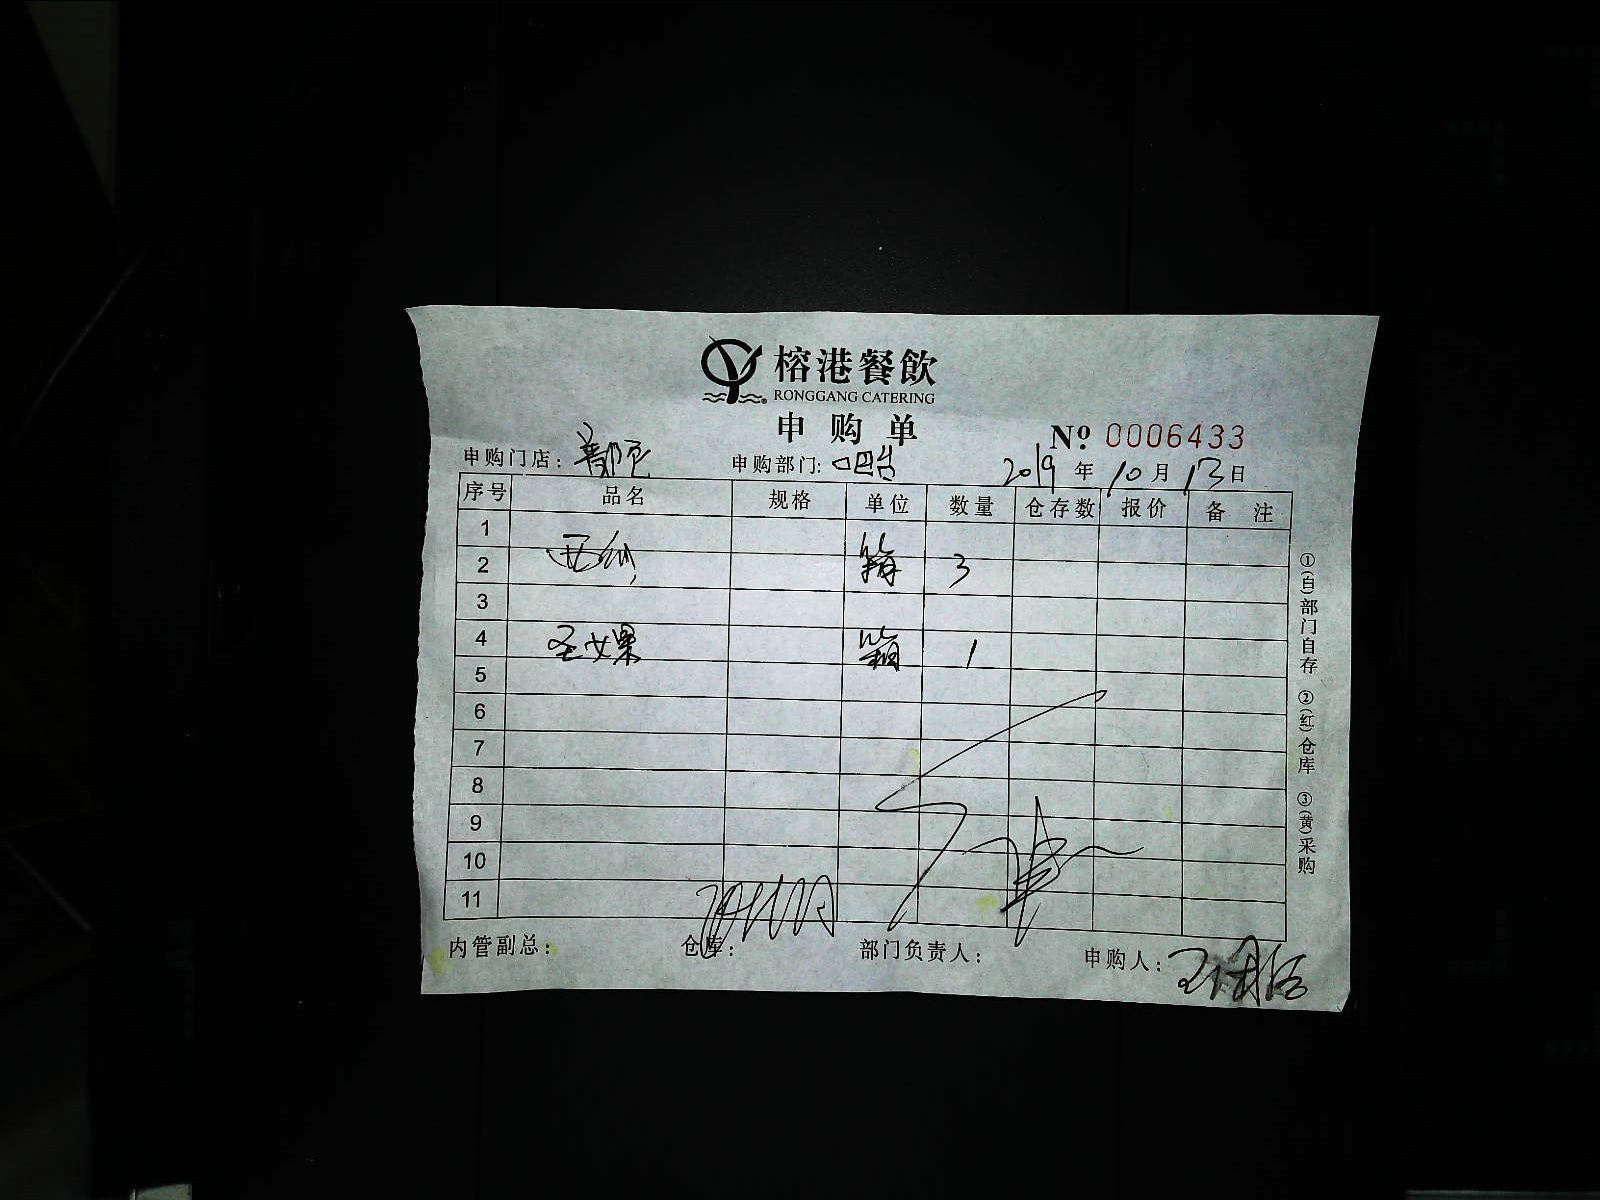 榕港餐飲
RONGGANG CATERING
申购单
Nº 0006433
申购门店: 申购部门: 吧台 2019 年 10 月 13 日
序号 品名 规格 单位 数量 仓存数 报价 备注
1
2 箱 3
3
4 圣女果 箱 1
5
6
7
8
9
10
11
内管副总: 仓库: 部门负责人: 申购人:
①(白)部门自存 ②(红)仓库 ③(黄)采购